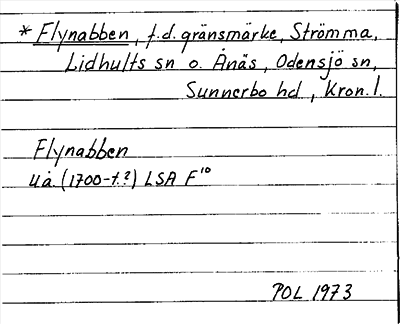 * Flynabben, f.d. gränsmärke, Strömma,
Lidhults sn o. Ånäs, Odensjö sn,
Sunnerbo hd, Kron.l.
Flynabben
u.å. (1700-t.?) LSA F¹⁰
POL 1973